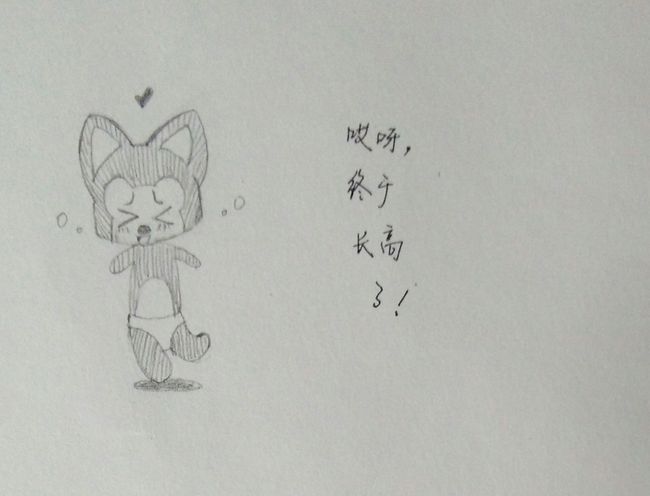 哎呀，
终于
长高
了！